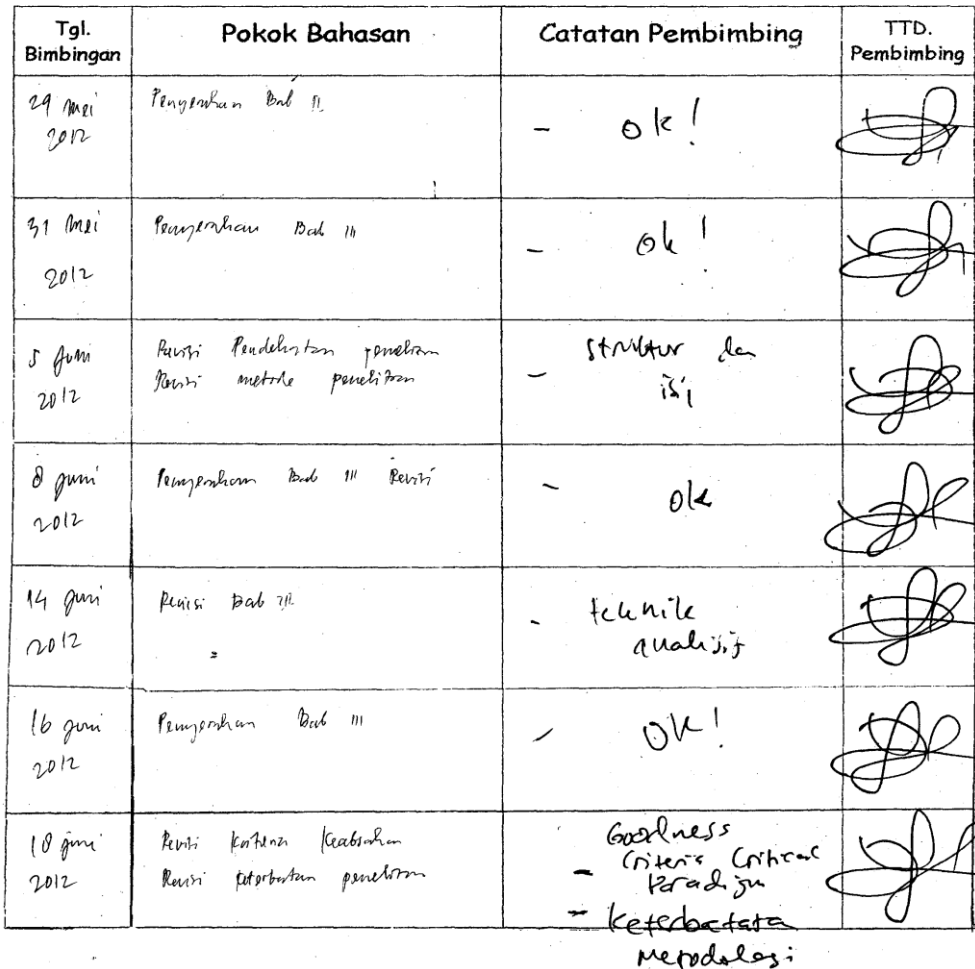 Tgl. Bimbingan Pokok Bahasan Catatan Pembimbing TTD. Pembimbing
29 Mei 2012 Penyerahan Bab II - ok!
31 Mei 2012 Penyerahan Bab III - ok!
5 Juni 2012 Revisi Pendekatan penelitian - struktur dan isi
Revisi metode penelitian
8 Juni 2012 Penyerahan Bab III Revisi - ok
14 Juni 2012 Revisi Bab III - teknik analisis
16 Juni 2012 Penyerahan Bab III - OK!
18 Juni 2012 Revisi Kriteria Keabsahan - Goodness Criteria Critical Paradigm
Revisi keterbatasan penelitian - Keterbatasan Metodologi